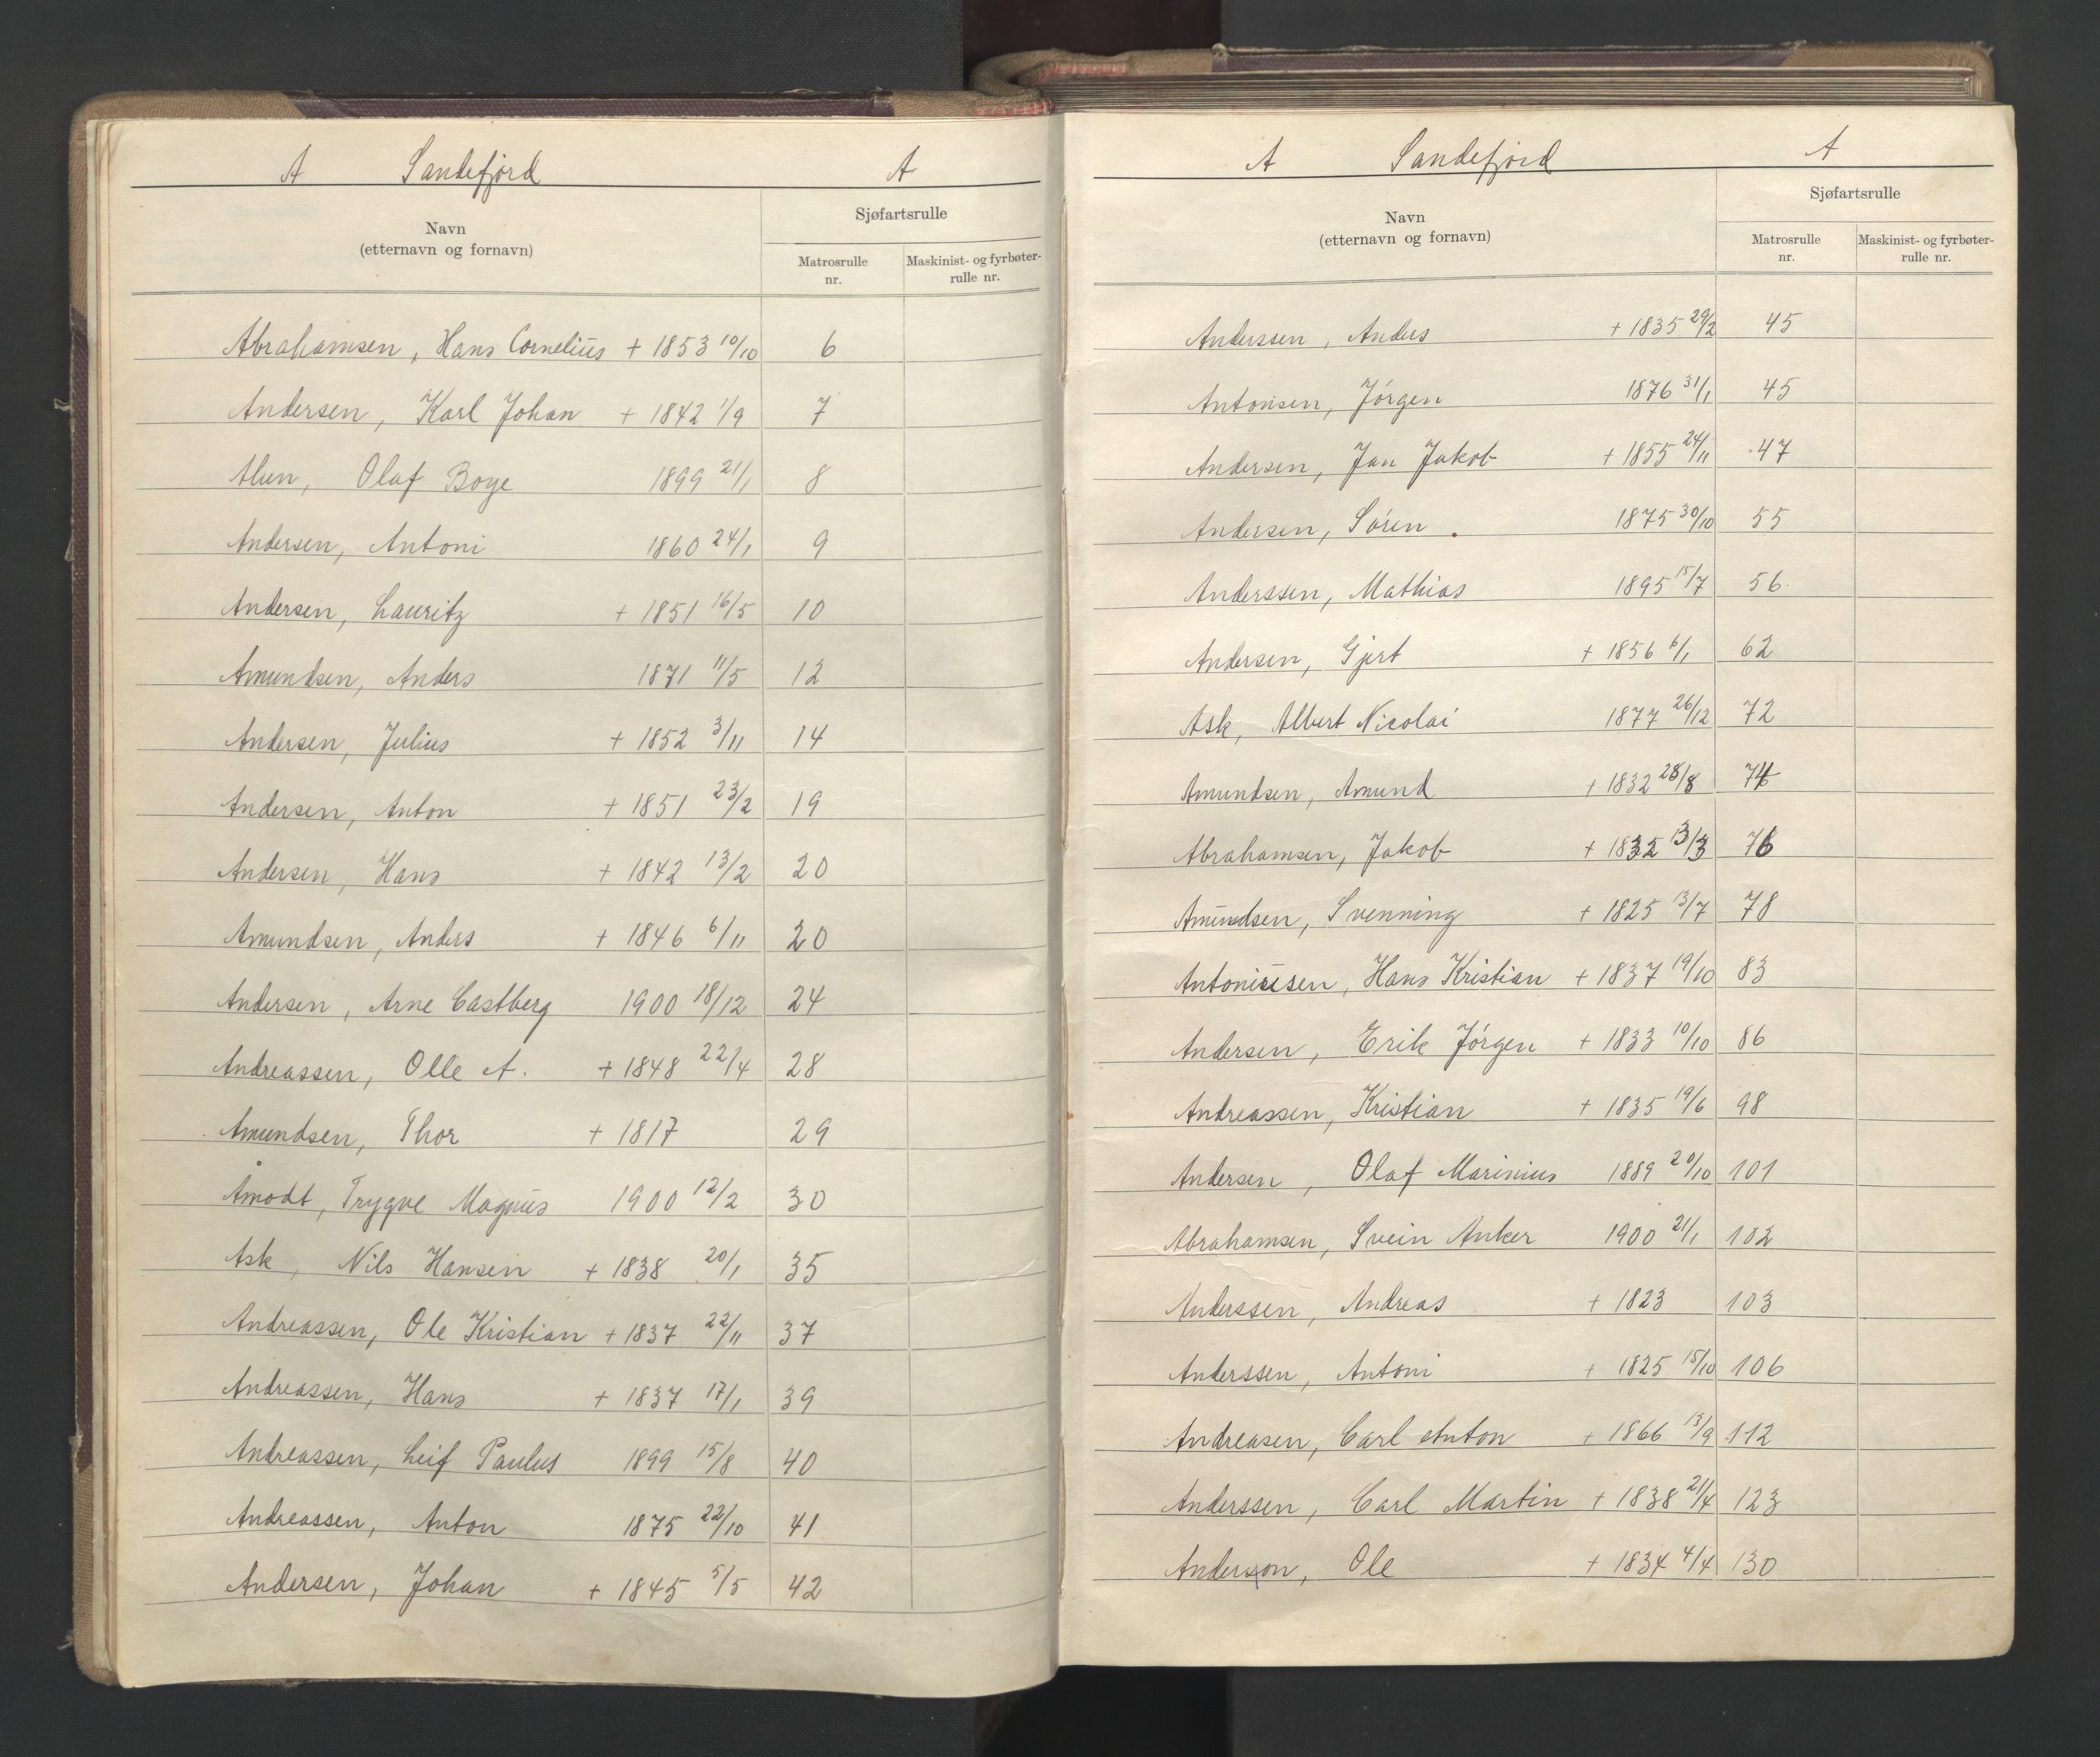 A Sandefjord A
Navn
(etternavn og fornavn)
Sjøfartsrulle
Matrosrulle nr.
Maskinist- og fyrbøter-rulle nr.
Abrahamsen, Hans Cornelius + 1853 10/10 6
Andersen, Karl Johan + 1842 1/9 7
Olaf Boye 1899 21/1 8
Andersen, Antoni 1860 24/1 9
Andersen, Lauritz + 1851 16/5 10
Amundsen, Anders 1871 11/5 12
Andersen, Julius + 1852 3/11 14
Andersen, Anton + 1851 23/2 19
Andersen, Hans + 1842 13/2 20
Amundsen, Anders + 1846 6/11 20
Andersen, Arne Castberg 1900 18/12 24
Andreassen, Olle A. + 1848 22/4 28
Amundsen, Thor + 1817 29
Åmodt, Trygve Magnus 1900 12/2 30
Ask, Nils Hansen + 1838 20/1 35
Andreassen, Ole Kristian + 1837 22/11 37
Andreassen, Hans + 1837 17/1 39
Andreassen, Leif Paulus 1899 15/8 40
Andreassen, Anton 1875 22/10 41
Andersen, Johan + 1845 5/5 42
A Sandefjord A
Navn
(etternavn og fornavn)
Sjøfartsrulle
Matrosrulle nr.
Maskinist- og fyrbøter-rulle nr.
Anderssen, Anders + 1835 29/2 45
Antonsen, Jörgen 1876 31/1 45
Andersen, Jan Jakob + 1855 24/11 47
Andersen, Sören 1875 30/10 55
Anderssen, Mathias 1895 15/7 56
Andersen, Gjert + 1856 6/1 62
Ask, Albert Nicolai 1877 26/12 72
Amundsen, Amund + 1832 28/8 74
Abrahamsen, Jakob + 1832 13/3 76
Amundsen, Svenning + 1825 13/7 78
Antonissen, Hans Kristian + 1837 19/10 83
Andersen, Erik Jörgen + 1833 10/10 86
Andreassen, Kristian + 1835 19/6 98
Andersen, Olaf Marinius 1889 20/10 101
Abrahamsen, Svein Anker 1900 21/1 102
Anderssen, Andreas + 1823 103
Anderssen, Antoni + 1825 15/10 106
Andreasen, Carl Anton + 1866 13/9 112
Anderssen, Carl Martin + 1838 21/4 123
Anderson, Ole + 1834 4/4 130